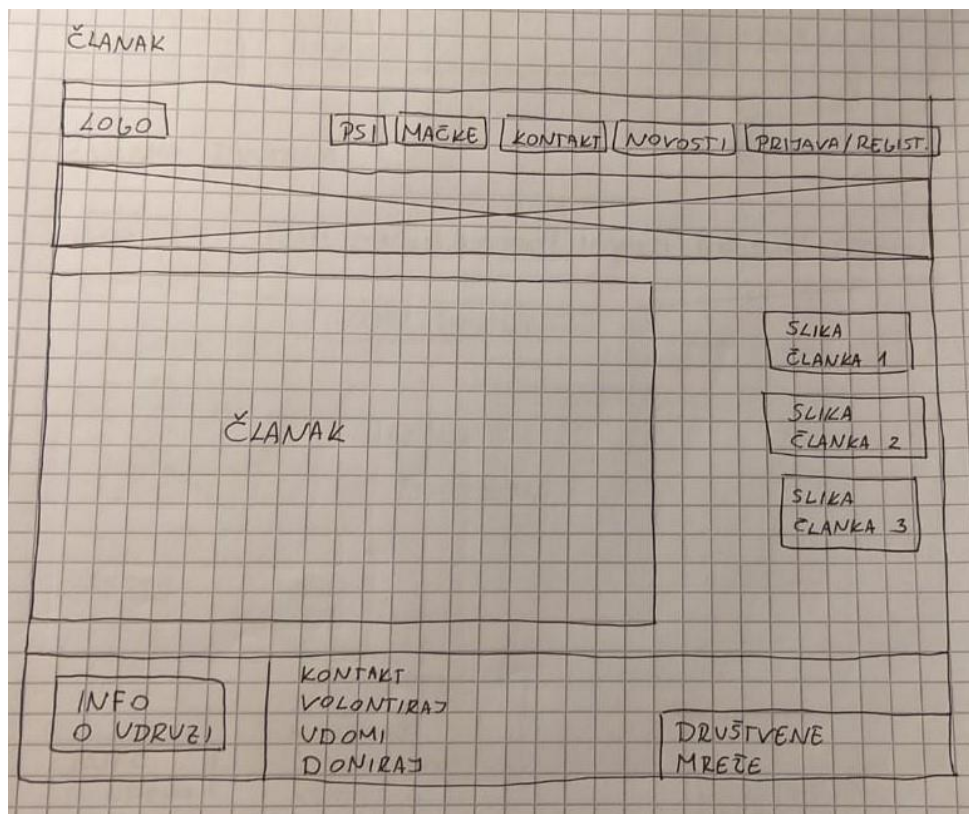 ČLANAK
LOGO
PSI MAČKE KONTAKT NOVOSTI PRIJAVA/REGIST.
SLIKA
ČLANKA 1
ČLANAK
SLIKA
ČLANKA 2
SLIKA
ČLANKA 3
INFO
O UDRUZI
KONTAKT
VOLONTIRAJ
UDOMI
DONIRAJ
DRUŠTVENE
MREŽE